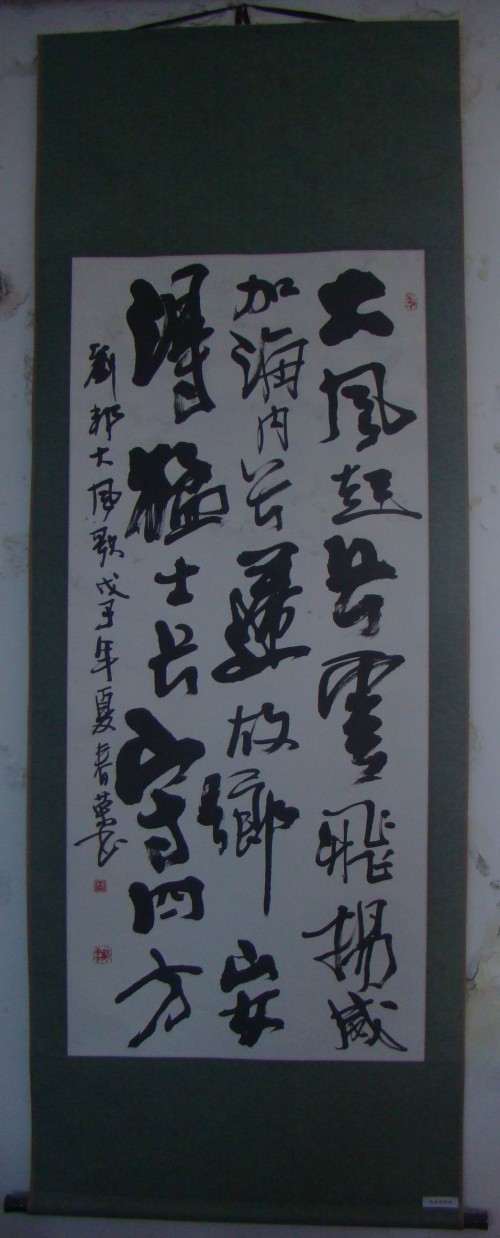 大風起兮雲飛揚威
加海内兮還故鄉安
得猛士兮守四方
劉邦大風歌戊子年夏春榮書